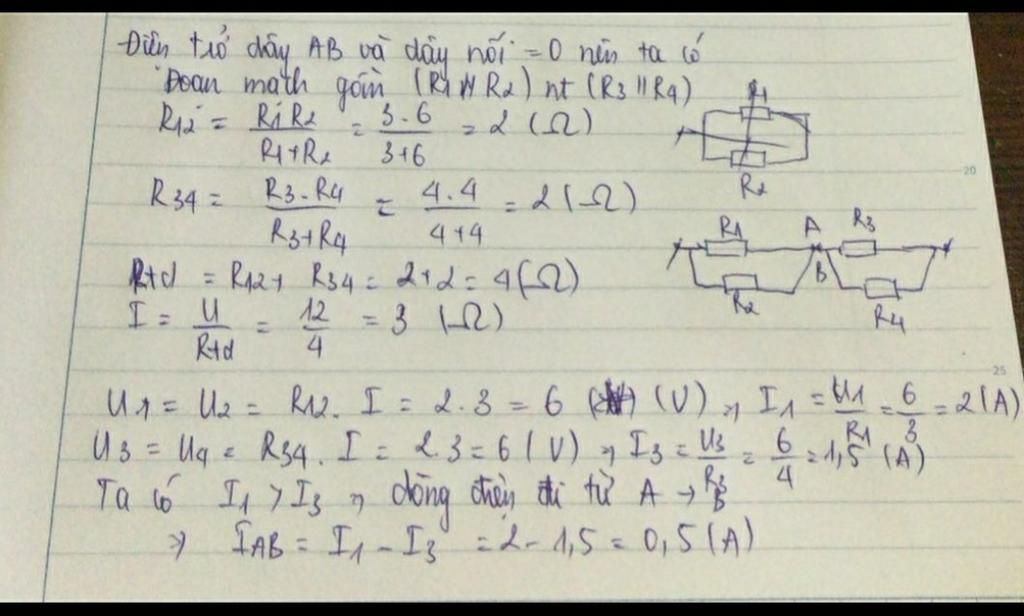 Điện trở dây AB và dây nối = 0 nên ta có
Đoạn mạch gồm (R1 // R2) nt (R3 // R4)
R12 = R1 R2 / R1+R2 = 3.6 / 3+6 = 2 (Ω)
R1
R2
R34 = R3.R4 / R3+R4 = 4.4 / 4+4 = 2 (Ω)
20
R1 A R3
B
R2 R4
Rtd = R12 + R34 = 2+2 = 4 (Ω)
I = U / Rtd = 12 / 4 = 3 (Ω)
25
U1 = U2 = R12 . I = 2.3 = 6 (V) => I1 = U1 / R1 = 6 / 3 = 2 (A)
U3 = U4 = R34 . I = 2.3 = 6 (V) => I3 = U3 / R3 = 6 / 4 = 1,5 (A)
Ta có I1 > I3 => dòng điện đi từ A → B
=> IAB = I1 - I3 = 2 - 1,5 = 0,5 (A)